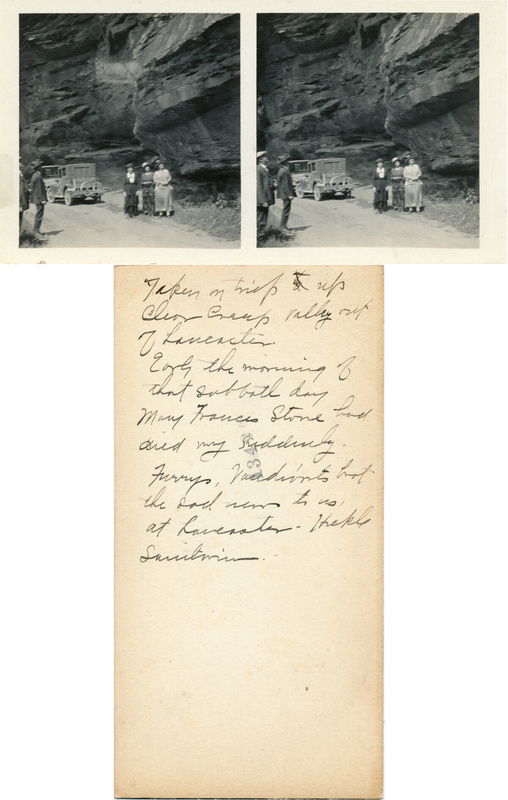 Taken on trip up
Clear Creek Valley out
of Lancaster.
Early the morning of
that sabbath day
Mary Frances Stone had
died very suddenly.
Furrys, brot
the sad news to us,
at Lancaster -